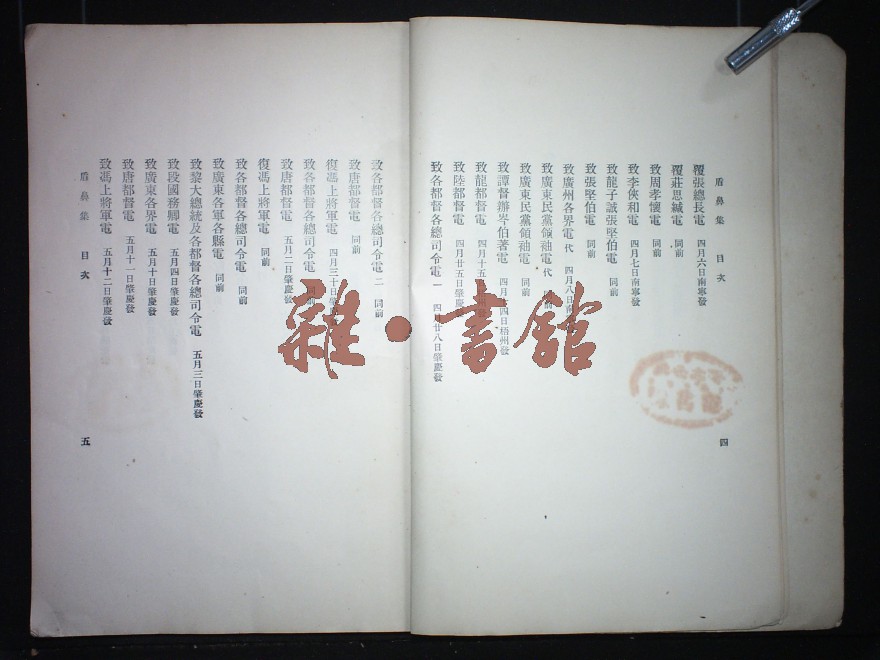 盾鼻集 目次
覆張總長電 四月六日南寧發
覆莊思緘電 同前
致周孝懷電 同前
致李俠和電 四月七日南寧發
致龍子誠張堅伯電 同前
致張堅伯電 同前
致廣州各界電 代 四月八日南
致廣東民黨領袖電 代
致廣東民黨領袖電 同前
致譚督辦岑伯著電 四月十四日梧州發
致龍都督電 四月十五
致陸都督電 四月廿五日肇慶
致各都督各總司令電 一 四月廿八日肇慶發
四
致各都督各總司令電 二 同前
致唐都督電 同前
復馮上將軍電 四月三十日肇
致各都督各總司令電 同前
致唐都督電 五月二日肇慶發
復馮上將軍電 同前
致各都督各總司令電 同前
致廣東各軍各縣電 同前
致黎大總統及各都督各總司令電 五月三日肇慶發
致段國務卿電 五月四日肇慶發
致廣東各界電 五月十日肇慶發
致唐都督電 五月十一日肇慶發
致馮上將軍電 五月十二日肇慶發
盾鼻集 目次
五
雜·書館